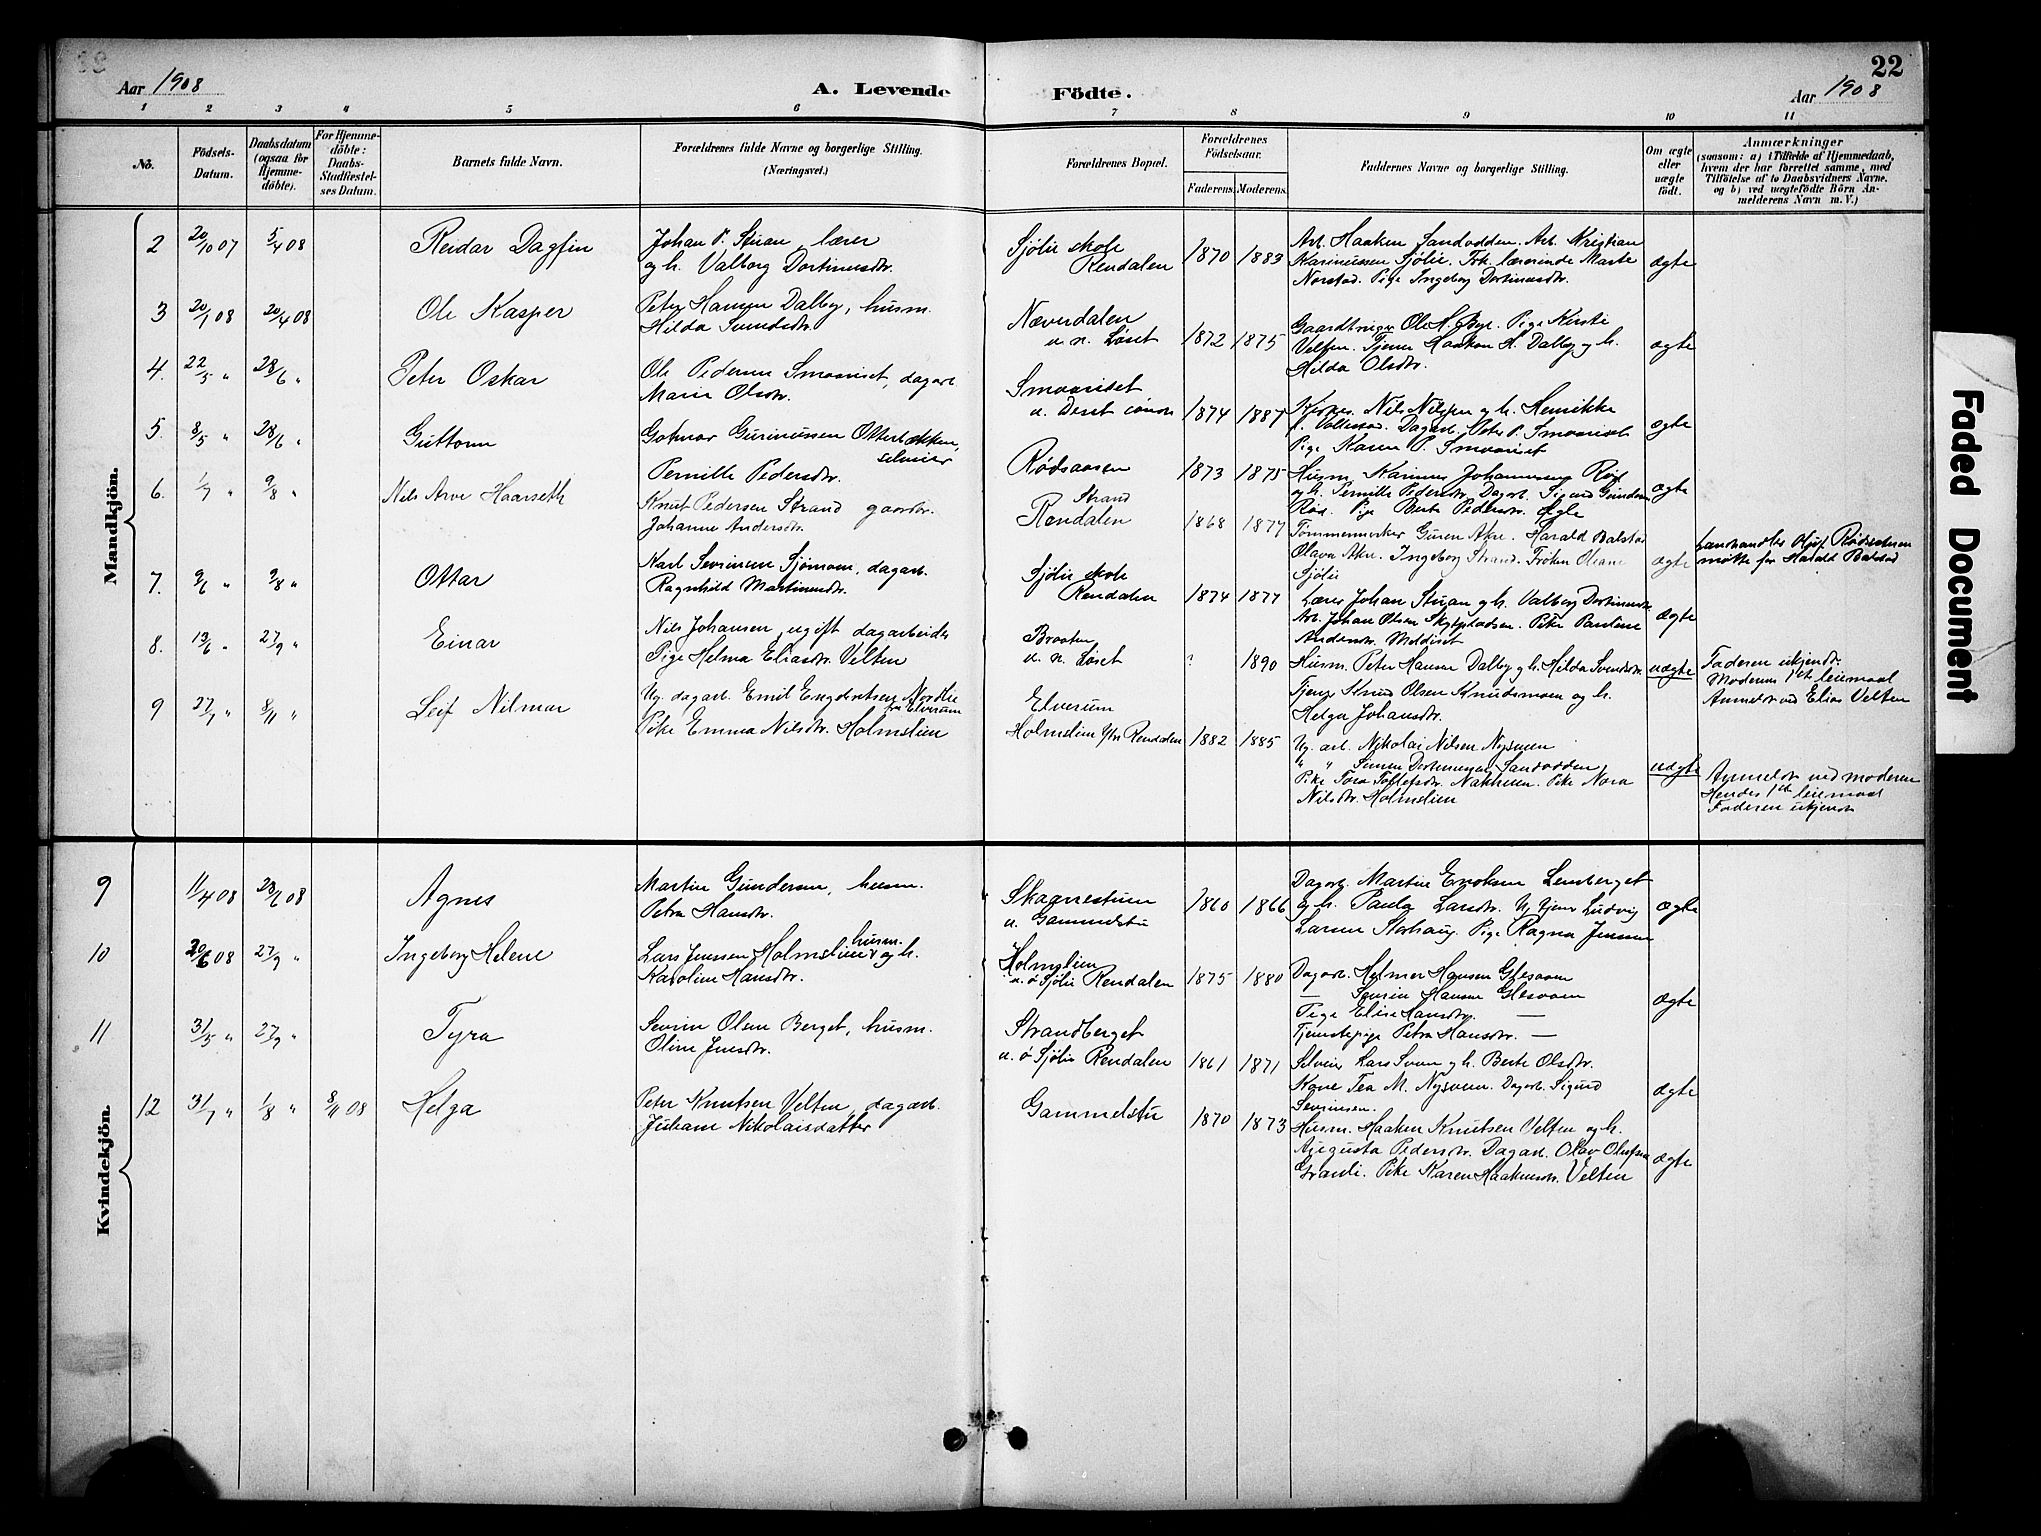 22
Aar 1908
A. Levende
Födte.
Aar 1908
1 2 3 4 5 6 7 8 9 10 11
No.
Födsels-
Datum.
Daabsdatum
(ogsaa for
Hjemme-
döbte).
For Hjemme-
döbte:
Daabs-
Stadfæstel-
ses Datum.
Barnets fulde Navn.
Forældrenes fulde Navne og borgerlige Stilling.
(Næringsvei.)
Forældrenes Bopæl.
Forældrenes
Födselsaar.
Faderens. Moderens.
Faddernes Navne og borgerlige Stilling.
Om ægte
eller
uægte
födt.
Anmærkninger
(saasom: a) i Tilfælde af Hjemmedaab,
hvem der har forrettet samme, med
Tilföielse af to Daabsvidners Navne,
og b) ved uægtefödte Börn An-
melderens Navn m. V.)
Mandkjön.
2 20/10 07 5/4 08 Reidar Dagfin
Johan P. Stuan, lærer
og h. Valborg Dortinusdtr.
Sjølie skole
Rendalen
1870 1883
Arb. Haaken Sandodden. Arb. Kristian
Karinussen Sjølie. Frk. lærerinde Marte
Norstad. Pige Ingeborg Dortinusdtr.
ægte
3 20/1 08 20/4 08 Ole Kasper
Peter Hansen Dalby, husm.
Hilda Svendsdtr.
Næverdalen
u. n. Løset
1872 1875
Gaardbruger Ole H. Bye. Pige Kirsti
Velten. Tjener Haakon H. Dalby og h.
Hilda Olsdtr.
ægte
4. 22/5 " 28/6 " Peter Oskar
Ole Pedersen Smaariset, dagarb.
Marie Olsdtr.
Smaariset
u. Deset
1874 1887
Nils Nilsen og h. Henrikke
Dagarb. Peter P. Smaariset
Pige Karen P. Smaariset
ægte
5. 8/5 " 28/6 " Guttorm
Gotmar Gurinussen Otterbækken,
selveier
Pernille Pedersdtr.
Rødsaasen
1873 1875
Husm. Karinus Johannesen Rød
og h. Pernille Pedersdtr. Dagarb. Sigurd Gundersen
Rød. Pige Berte Pedersdtr.
ægte
6. 1/7 " 9/8 " Nils Arve Haarseth
Knut Pedersen Strand gaardbr.
Johanne Andersdtr.
Strand
Rendalen
1868 1877
Tømmermerker Guren Akre. Harald Balstad
Olava Akre. Ingeborg Strand. Frøken Oleane
Sjølie
ægte
Landhandler Oluf Rødsæteren
møtte for Harald Balstad
7. 9/6 " 9/8 " Ottar
Karl Severinsen Sjømoen, dagarb.
Ragnhild Martinusdtr.
Sjølie skole
Rendalen
1874 1877
Lærer Johan Stuan og h. Valborg Dortinusdtr.
Arb. Johan Olsen. Pike Pauline
Andersdtr. Meldiset
ægte
8. 19/6 " 27/9 " Einar
Nils Johansen, ugift dagarbeider
Pige Helma Eliasdtr. Velten
Braaten
u. n. Løset
? 1890
Husm. Peter Hansen Dalby og h. Hilda Svendsdtr.
Tjener Knud Olsen Knudsmoen og h.
Helga Johansdtr.
uægte
Faderen ukjendt.
Moderens 1ste leiemaal
Anmeldt ved Elias Velten
9 27/7 " 8/11 " Leif Nilmar
Ug. dagarb. Emil Engebretsen Nordlie
fra Elverum
Pike Emma Nilsdtr. Holmslien
Elverum
Holmslien Ytre Rendalen
1882 1885
Ug. arb. Nikolai Nilsen Nysveen
" " Simen Dortinussen Sandodden
Pike Tora Tollefsdtr. Nakkeen. Pike Nora
Nilsdtr. Holmslien
uægte
Anmeldt ved moderen
Hendes 1ste leiemaal
Faderen ukjendt
Kvindekjön.
9 11/4 08 28/6 08 Agnes
Martin Gundersen, husm.
Petra Hansdtr.
Skaanestuen
u. Gammelstu
1860 1866
Dagarb. Martin Eriksen Lensberget
og h. Paula Larsdtr. Ug. tjener Ludvig
Larsen Storhaug. Pige Ragna Jensen
ægte
10 20/6 08 27/9 " Ingeborg Helene
husm.
Lars Jenssen Holmslien og h.
Karoline Hansdtr.
Holmslien
u. ø Sjølie Rendalen
1875 1880
Dagarb. Helmer Hansen Glesaaen
— Severin Hansen Glesaaen
Pige Elise Hansdtr. —
Tjenestepige Petra Hansdtr. —
ægte
11 31/5 " 27/9 " Tyra
Severin Olsen Berget, husm.
Oline Jensdtr.
Strandberget
u. ø Sjølie Rendalen
1861 1871
Selveier Lars Sveen og h. Berte Olsdtr.
Kone Tea M. Nysveen. Dagarb. Sigurd
Severinsen.
ægte
12 31/7 " 1/8 " 8/11 08 Helga
Peter Knutsen Velten, dagarb.
Juliane Nikolaisdatter
Gammelstu
1870 1873
Husm. Haaken Knutsen Velten og h.
Augusta Pedersdtr. Dagarb. Olav Olufsen
Granli. Pike Karen Haakensdtr. Velten
ægte
Faded Document